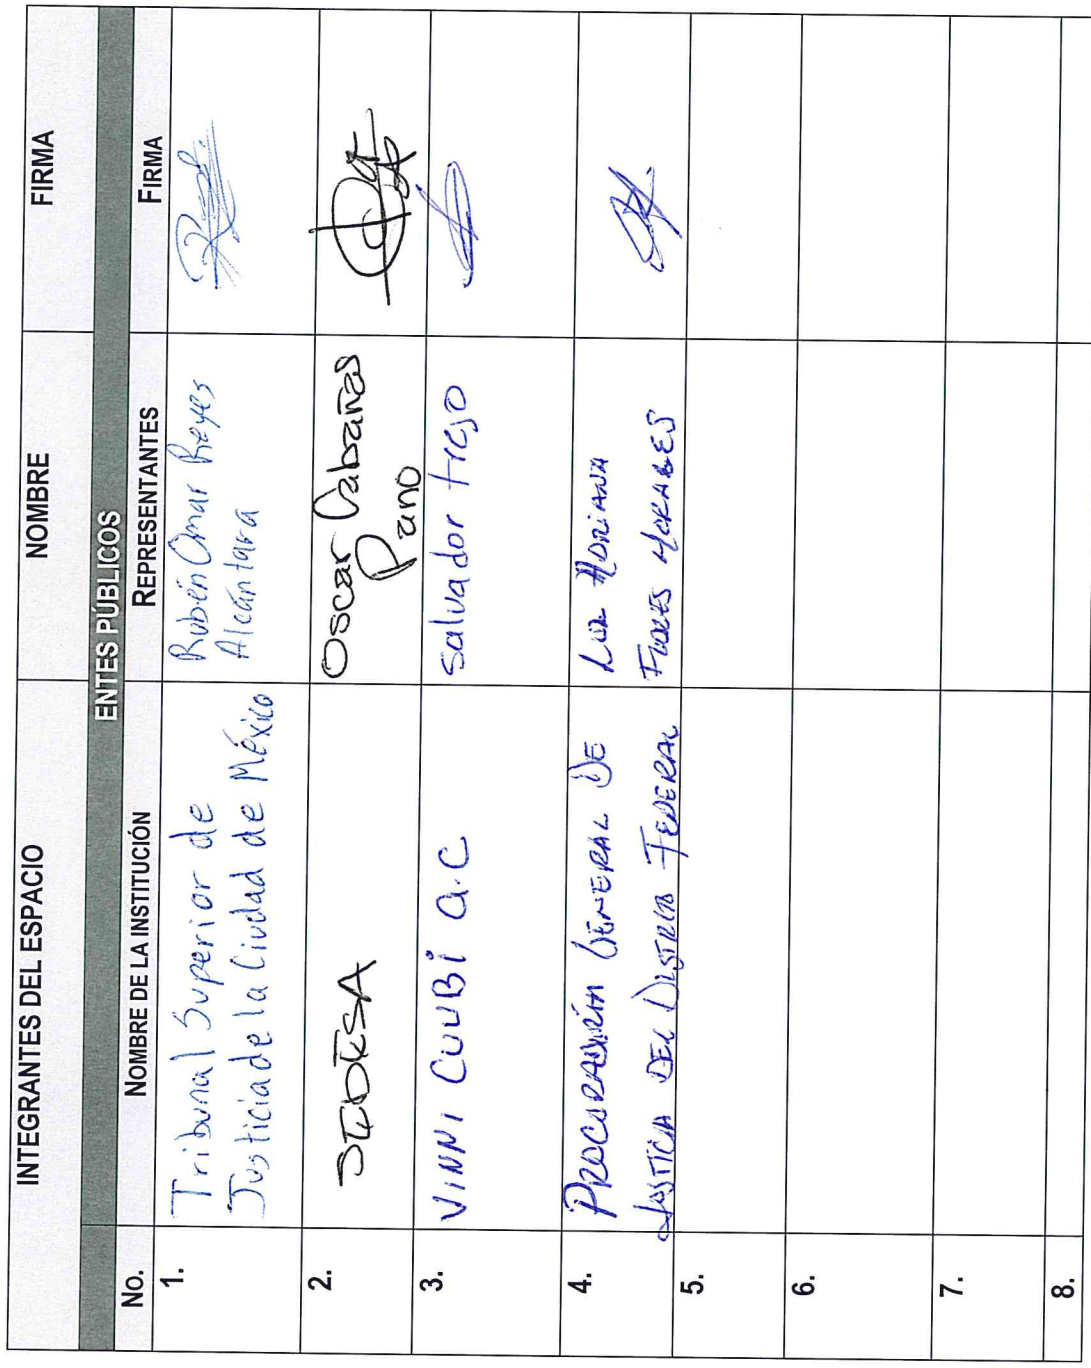 INTEGRANTES DEL ESPACIO NOMBRE FIRMA
ENTES PÚBLICOS
No. NOMBRE DE LA INSTITUCIÓN REPRESENTANTES FIRMA
1. Tribunal Superior de Justicia de la Ciudad de México
Rubén Omar Reyes
Alcántara
2. SEDESA
Oscar Cabañas
Pano
3. VINNI CUUBI a.c
Salvador trejo
4. PROCURADURÍA GENERAL DE
JUSTICIA DEL DISTRITO FEDERAL
Luz ADRIANA
FLORES MORALES
5.
6.
7.
8.